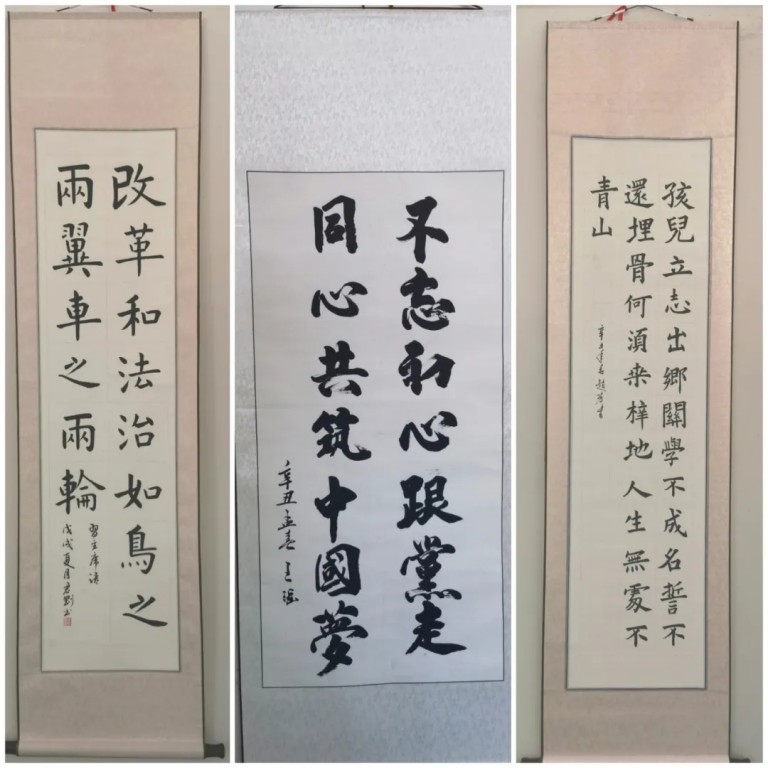 改革和法治如鳥之
兩翼車之兩輪
習主席語
戊戌夏月
不忘初心跟黨走
同心共筑中國夢
辛丑孟春
孩兒立志出鄉關學不成名誓不
還埋骨何湏来梓地人生無處不
青山
辛丑